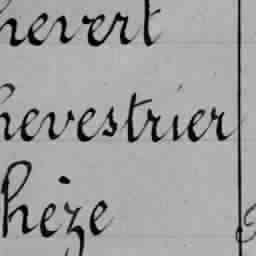 hevert
hevestrier
hèze